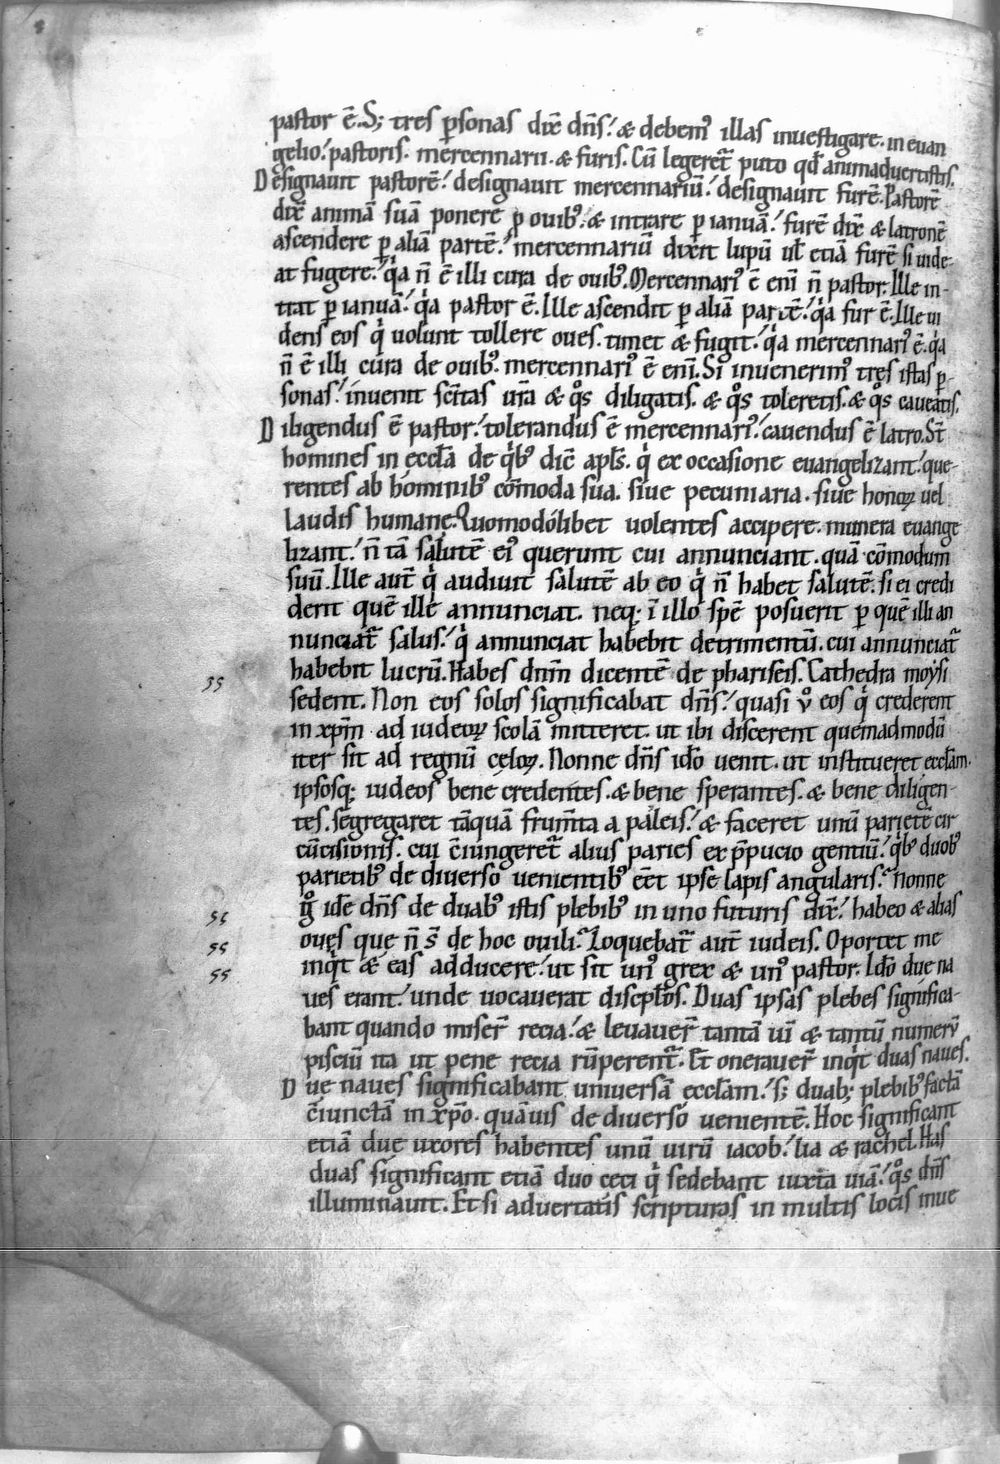 pastor ē. S; tres ꝑsonas dix̄ dn̄s.' & debem᷒ illas inuestigare. in euan
gelio.' pastoris. mercennarii. & furis. Cū legeret᷑ puto qđ animaduertistis.
Designauit pastorē.' designauit mercennariū.' designauit furē. Pastorē
dix̄ animā suā ponere ꝓ ouib᷒. & intrare ꝑ ianuā.' furē dix̄ & latronē
ascendere ꝑ aliā partē.' mercennariū dixit lupū ul̄ etiā furē si uide-
at fugere.' qͥa n̄ ē illi cura de ouib᷒. Mercennari᷒ ē eni n̄ pastor. Ille in-
trat ꝑ ianuā.' qͥa pastor ē. Ille ascendit ꝑ aliā partē.' qͥa fur ē. Ille ui
dens eos qͥ uolunt tollere oues. timet & fugit.' qͥa mercennari᷒ ē. qͥa
n̄ ē illi cura de ouib᷒. mercennari᷒ ē eni. Si inuenerim᷒ tres istas ꝑ-
sonas.' inuenit sc̄itas ur̄a & qͦs diligatis. & qͦs toleretis. & qͦs caueatis.
Diligendus ē pastor.' tolerandus ē mercennari᷒.' cauendus ē latro. St̄
homines in eccl̄a de qͥb᷒ dic̄ apl̄s. qͥ ex occasione euangelizant.' que-
rentes ab hominib᷒ cōmoda sua. siue pecuniaria. siue honoꝝ uel
laudis humanę. Quomodolibet uolentes accipere. munera euange
lizant.' n̄ tā salutē ei᷒ querunt cui annunciant. quā cōmodum
suū. Ille aut̄ qͥ audiuit salutē ab eo qͥ n̄ habet salutē. si ei credi
derit quē ille annunciat. neq; ī illo spē posuerit ꝑ quē illi an
nunciat᷑ salus.' qͥ annunciat habebit detrimentū. cui annunciat᷑
habebit lucrū. Habes dnm̄ dicentē de phariseis. Cathedra moysi
sedent. Non eos solos significabat dn̄s.' quasi ỻ eos qͥ crederent
in xp̄m ad iudeoꝝ scolā mitteret. ut ibi discerent quemadmodū
iter sit ad regnū cęloꝝ. Nonne dn̄s ido uenit. ut institueret eccl̄am.
ipsosq; iudeos bene credentes. & bene sperantes. & bene diligen-
tes. segregaret tāquā frum̄ta a paleis.' & faceret unū parietē cir
cūcisionis. cui c̄iungeret᷑ alius paries ex p̄pucio gentiū.' qͥb᷒ duob᷒
parietib᷒ de diuerso uenientib᷒ eēt ipse lapis angularis. Nonne
gͦ ide dn̄s de duab᷒ istis plebib᷒ in uno futuris dix̄.' habeo & alias
oues que n̄ s̄ de hoc ouili. Loquebat᷑ aut̄ iudeis. Oportet me
inqͥt & eas adducere.' ut sit un᷒ grex & un᷒ pastor. Ido due na
ues erant.' unde uocauerat discipl̄os. Duas ipsas plebes significa-
bant quando miser̄ recia.' & leuauer̄ tantā uī & tantū numerū
pisciū ita ut pene recia rūperent᷑. Et onerauer̄ inqͥt duas naues.
Due naues significabant uniuersā eccl̄am.' s; duab; plebib᷒ factā
c̄iunctā in xp̄o. quāuis de diuerso uenientē. Hoc significant
etiā due uxores habentes unū uirū iacob.' lia & rachel. Has
duas significant etiā duo ceci qͥ sedebant iuxta uiā.' qͦs dn̄s
illuminauit. Et si aduertatis scripturas in multis locis inue